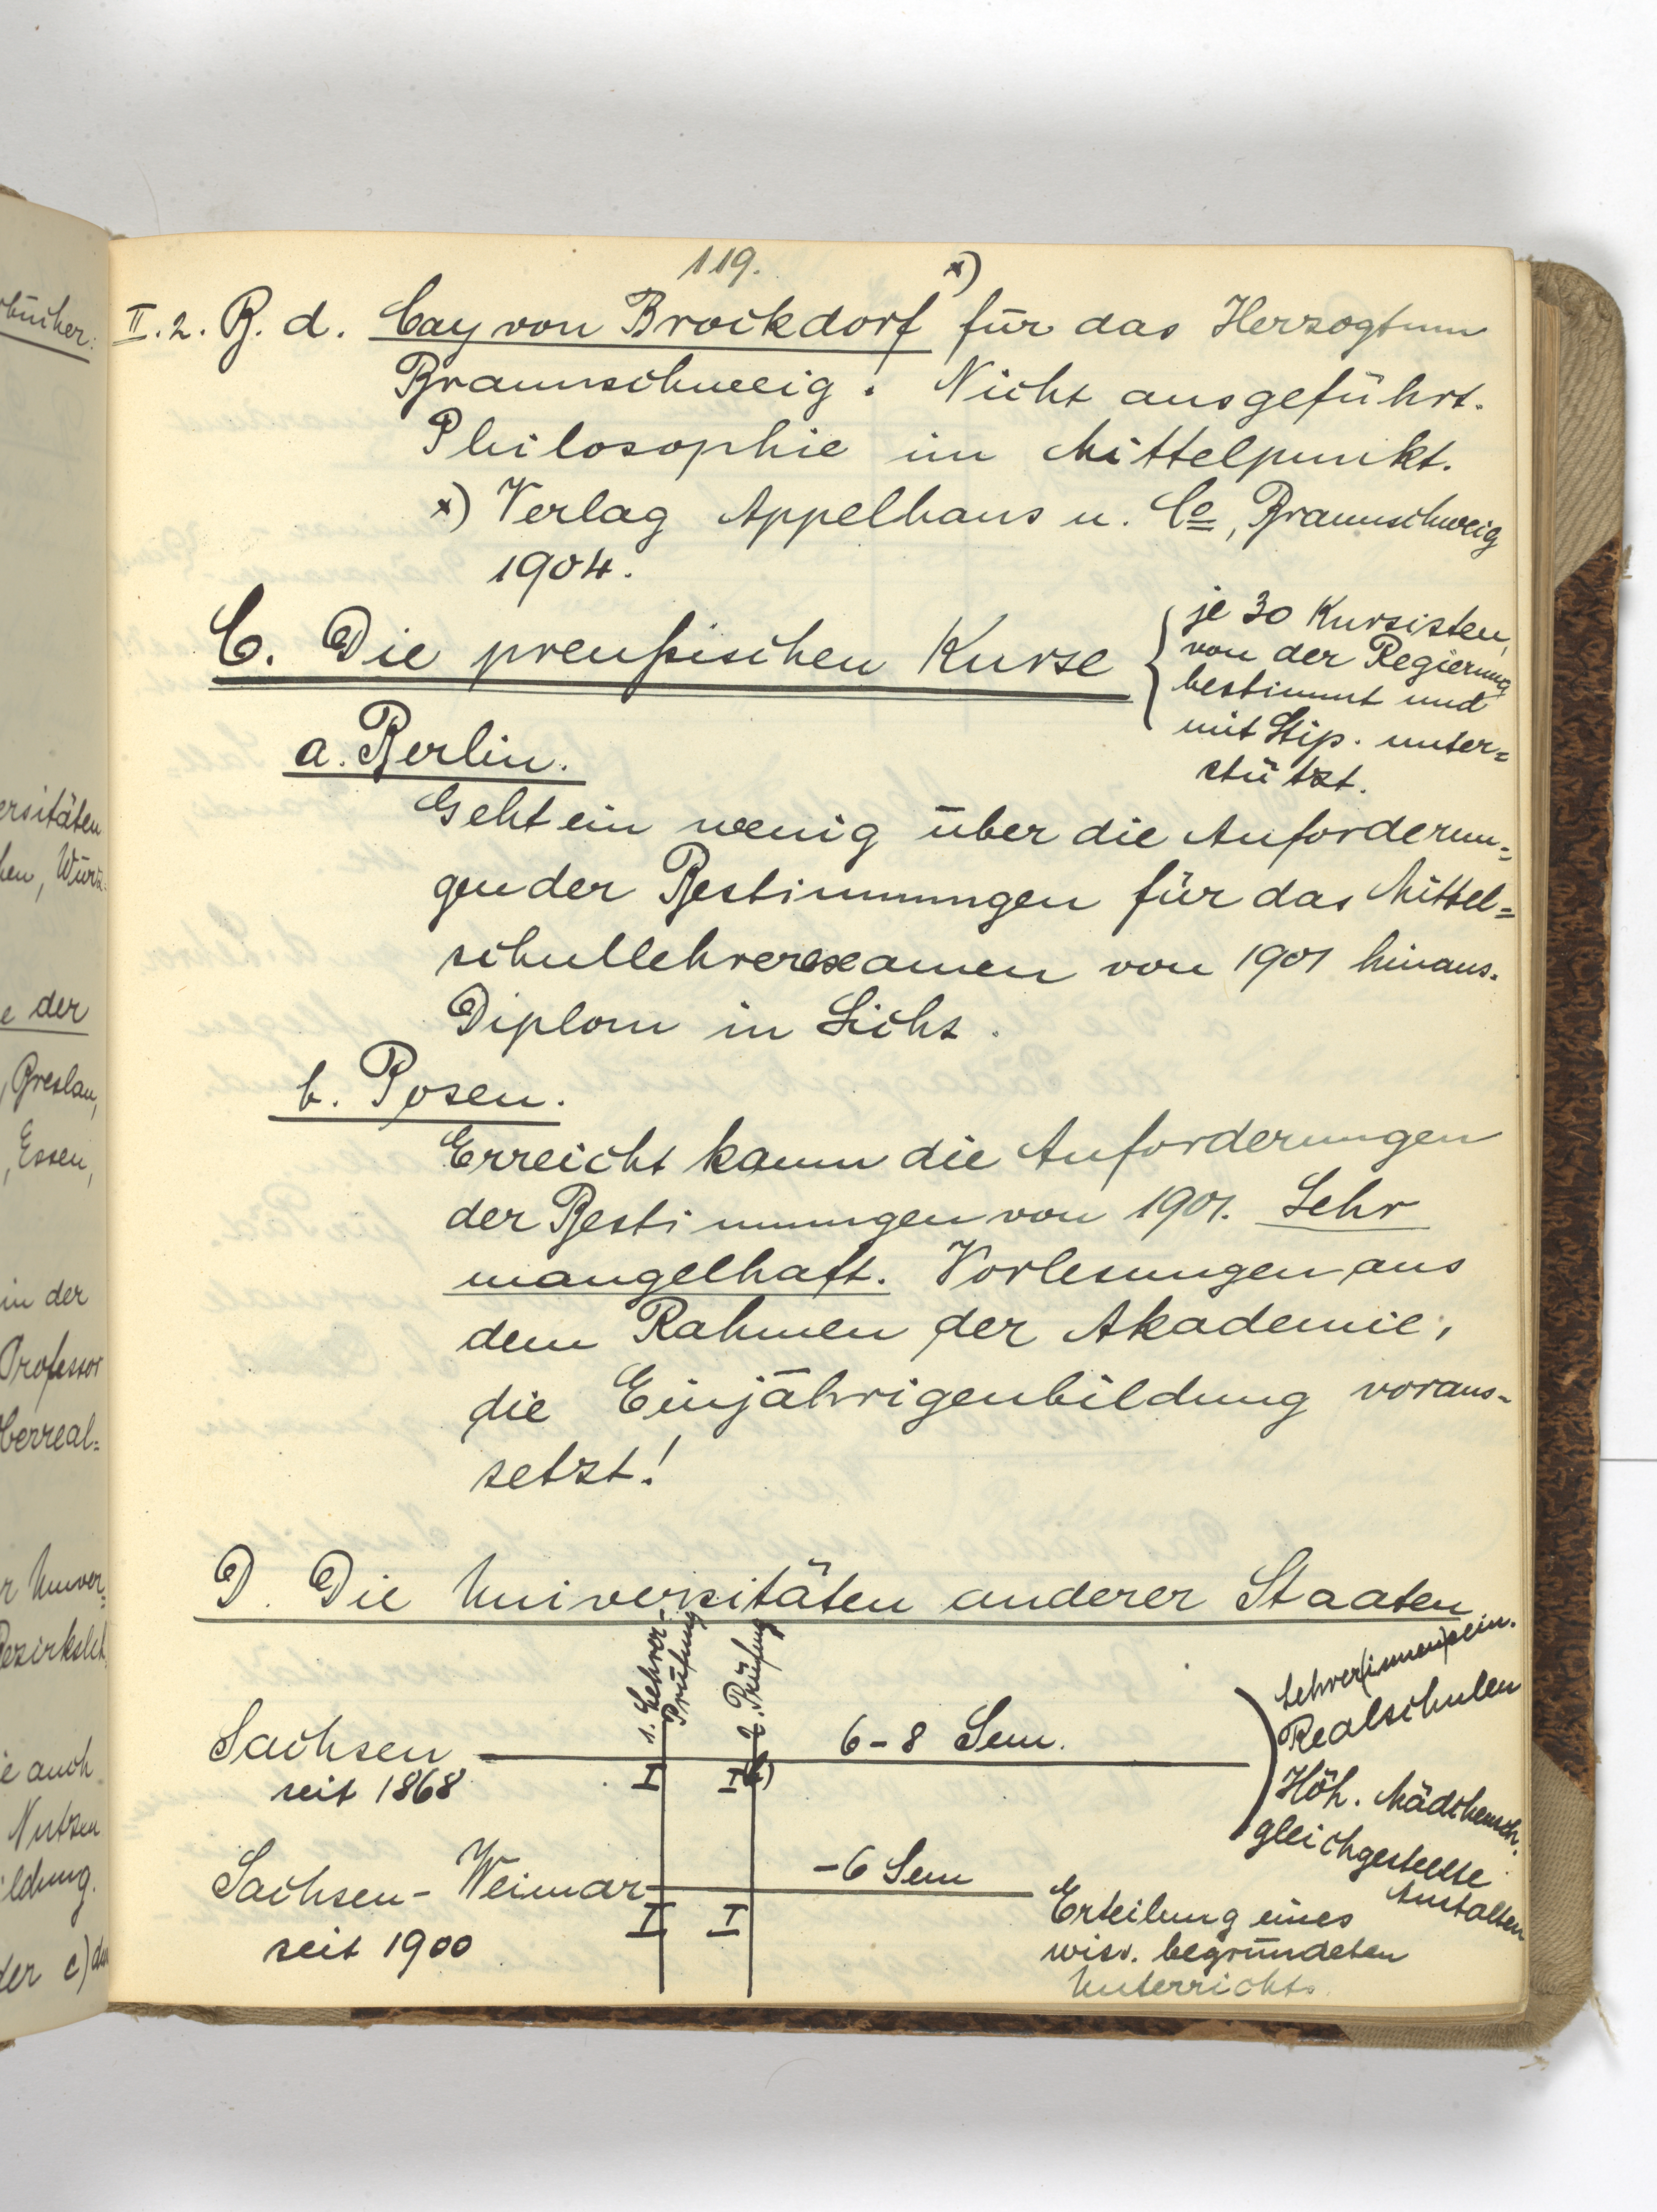 119.
II. 2. B. d. Cay von Brockdorf x) für das Herzogtum
Braunschweig. Nicht ausgeführt.
Philosophie im Mittelpunkt.
x) Verlag Appelhaus u. Co, Braunschweig
1904.
C. Die preußischen Kurse
je 30 Kursisten,
von der Regierung
bestimmt und
mit Stip. unter=
stützt.
a. Berlin.
Geht ein wenig über die Anforderun=
gen der Bestimmungen für das Mittel=
schullehrerexamen von 1901 hinaus.
Diplom in Sicht.
b. Posen.
Erreicht kaum die Anforderungen
der Bestimmungen von 1901. Sehr
mangelhaft. Vorlesungen aus
dem Rahmen der Akademie,
die Einjährigenbildung voraus-
setzt!
D. Die Universitäten anderer Staaten
1. Lehrer-
Prüfung
2. Prüfung
Sachsen
seit 1868
I
I
6-8 Sem.
Lehrer(innen)sem.
Realschulen
Höh. Mädchensch.
gleichgestellte
Anstalten
Sachsen-Weimar
seit 1900
I
I
-6 Sem
Erteilung eines
wiss. begründeten
Unterrichts
bücher:
ersitäten
hen, Würz=
e der
, Breslau,
, Essen,
in der
Professor
Oberreal=
r Univer=
Bezirksleh
ie auch
Nutzen
ildung.
der c) den